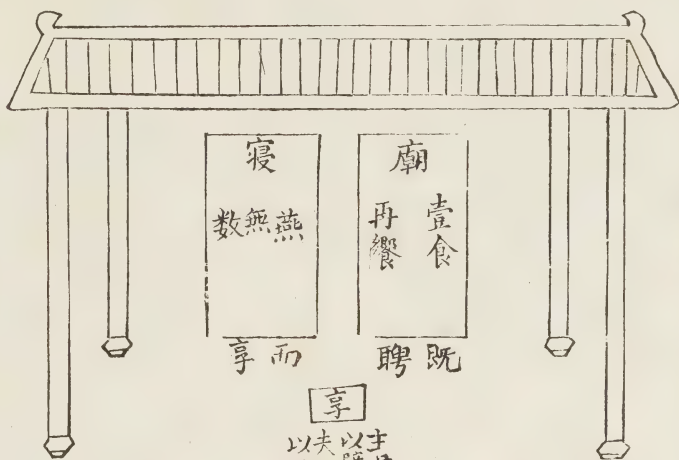 廟
壹食
再饗
寢
燕無数
既聘
而享
享
主
以
夫
以